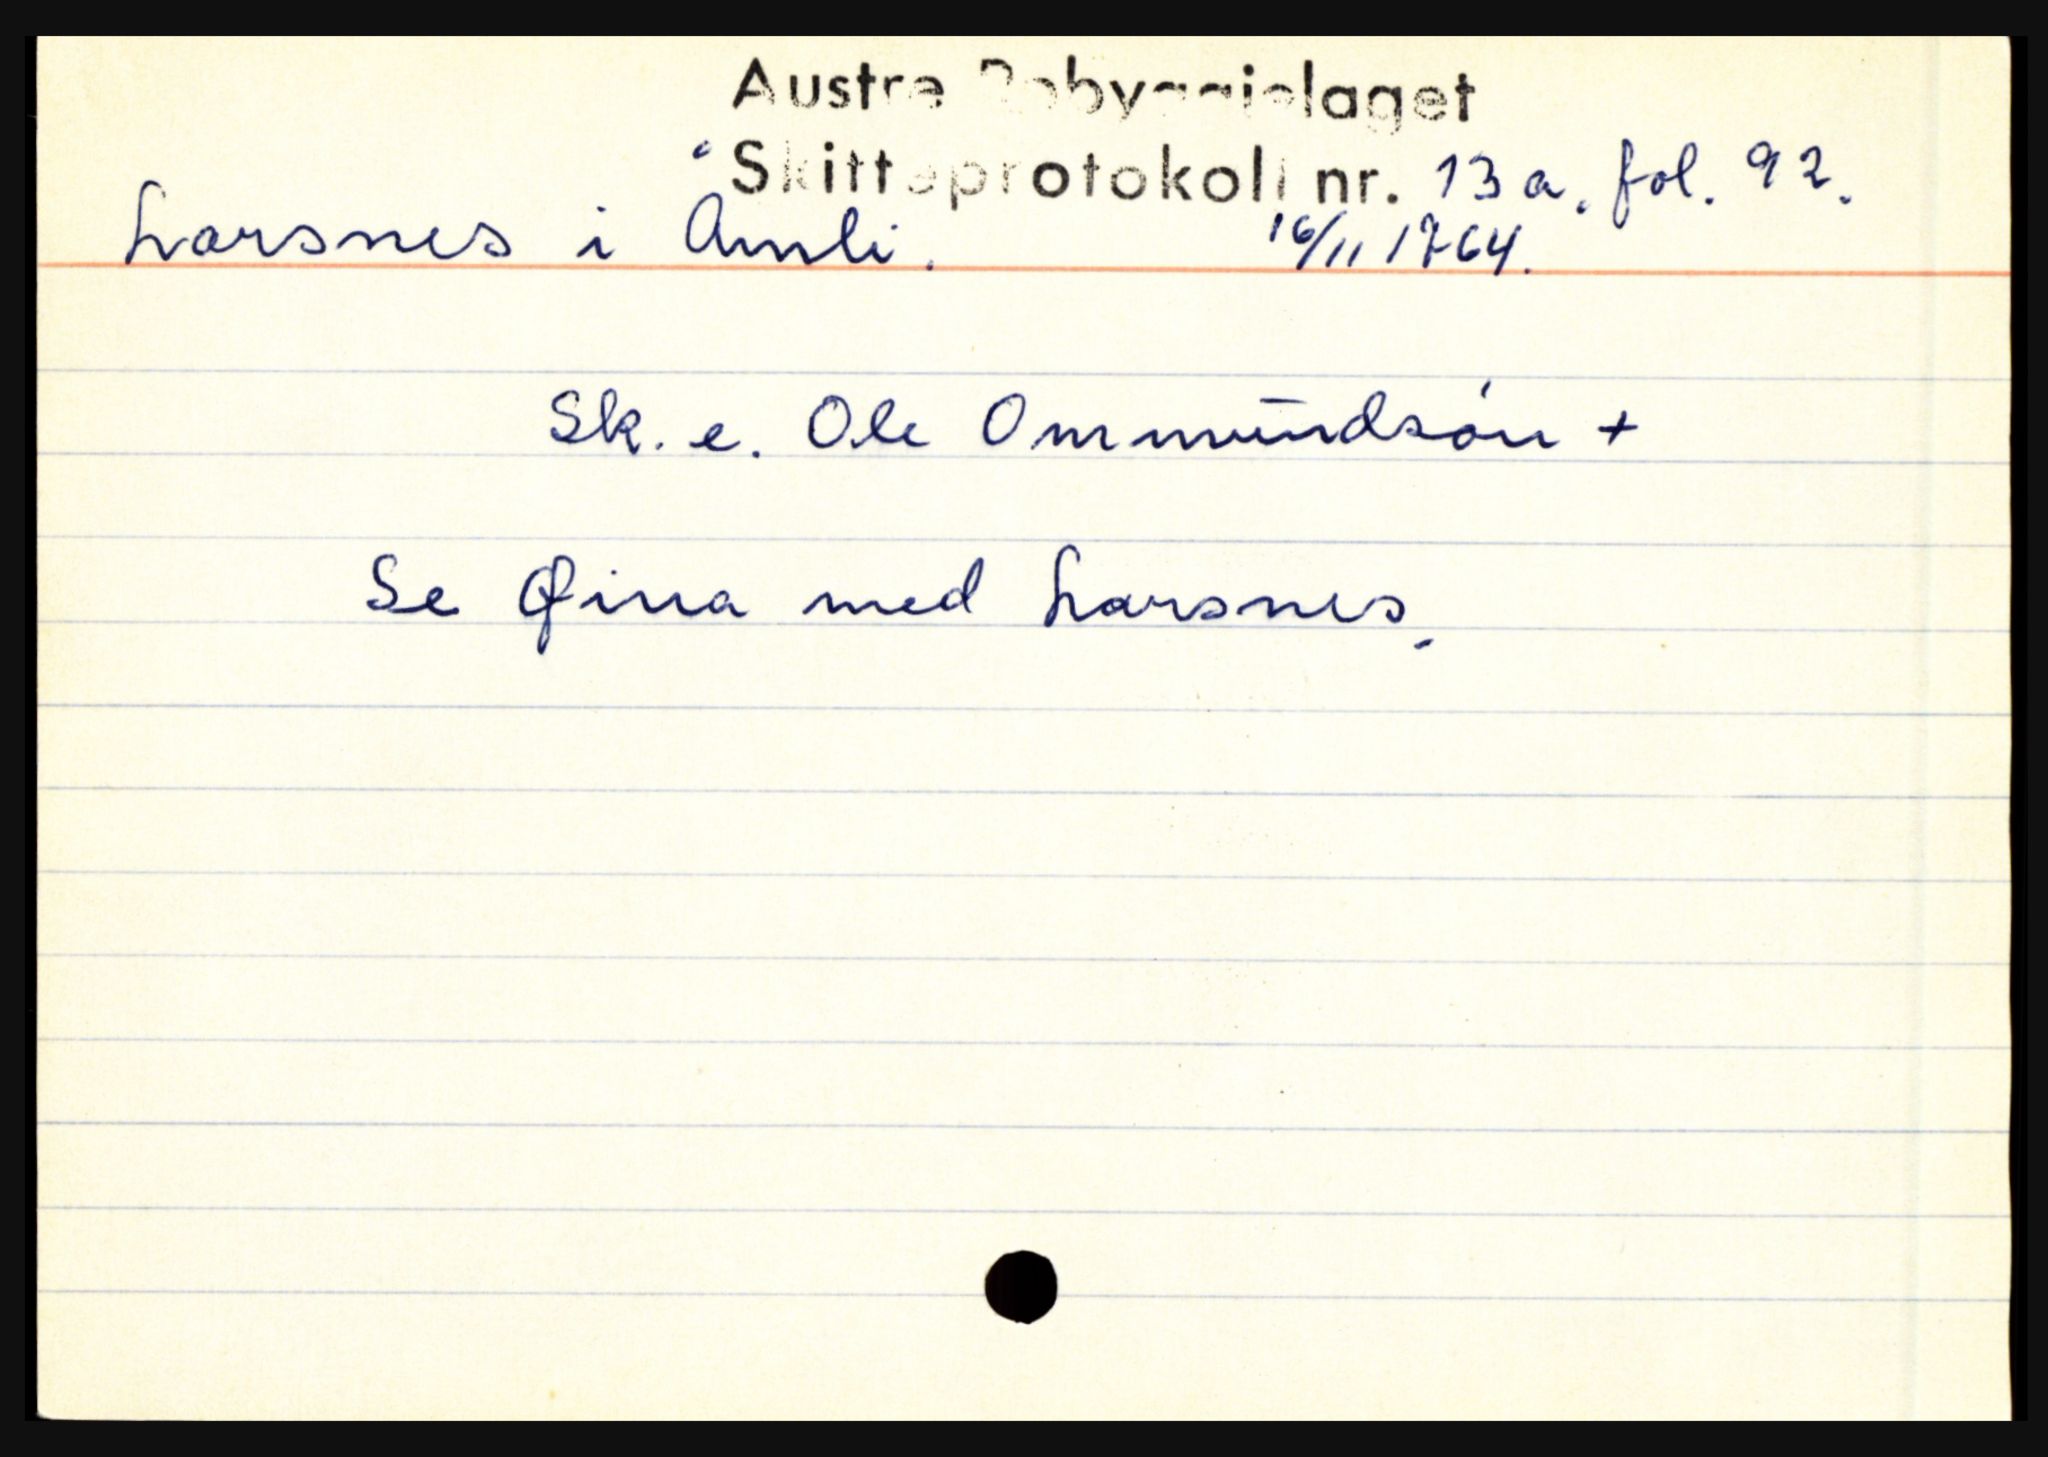 Austre Robyggjelaget
Skifteprotokoll nr. 13 a. fol. 92.
Larsnes i Åmli. 16/11 1764.
Sk. e. Ole Ommundsón +
Se Øina med Larsnes.